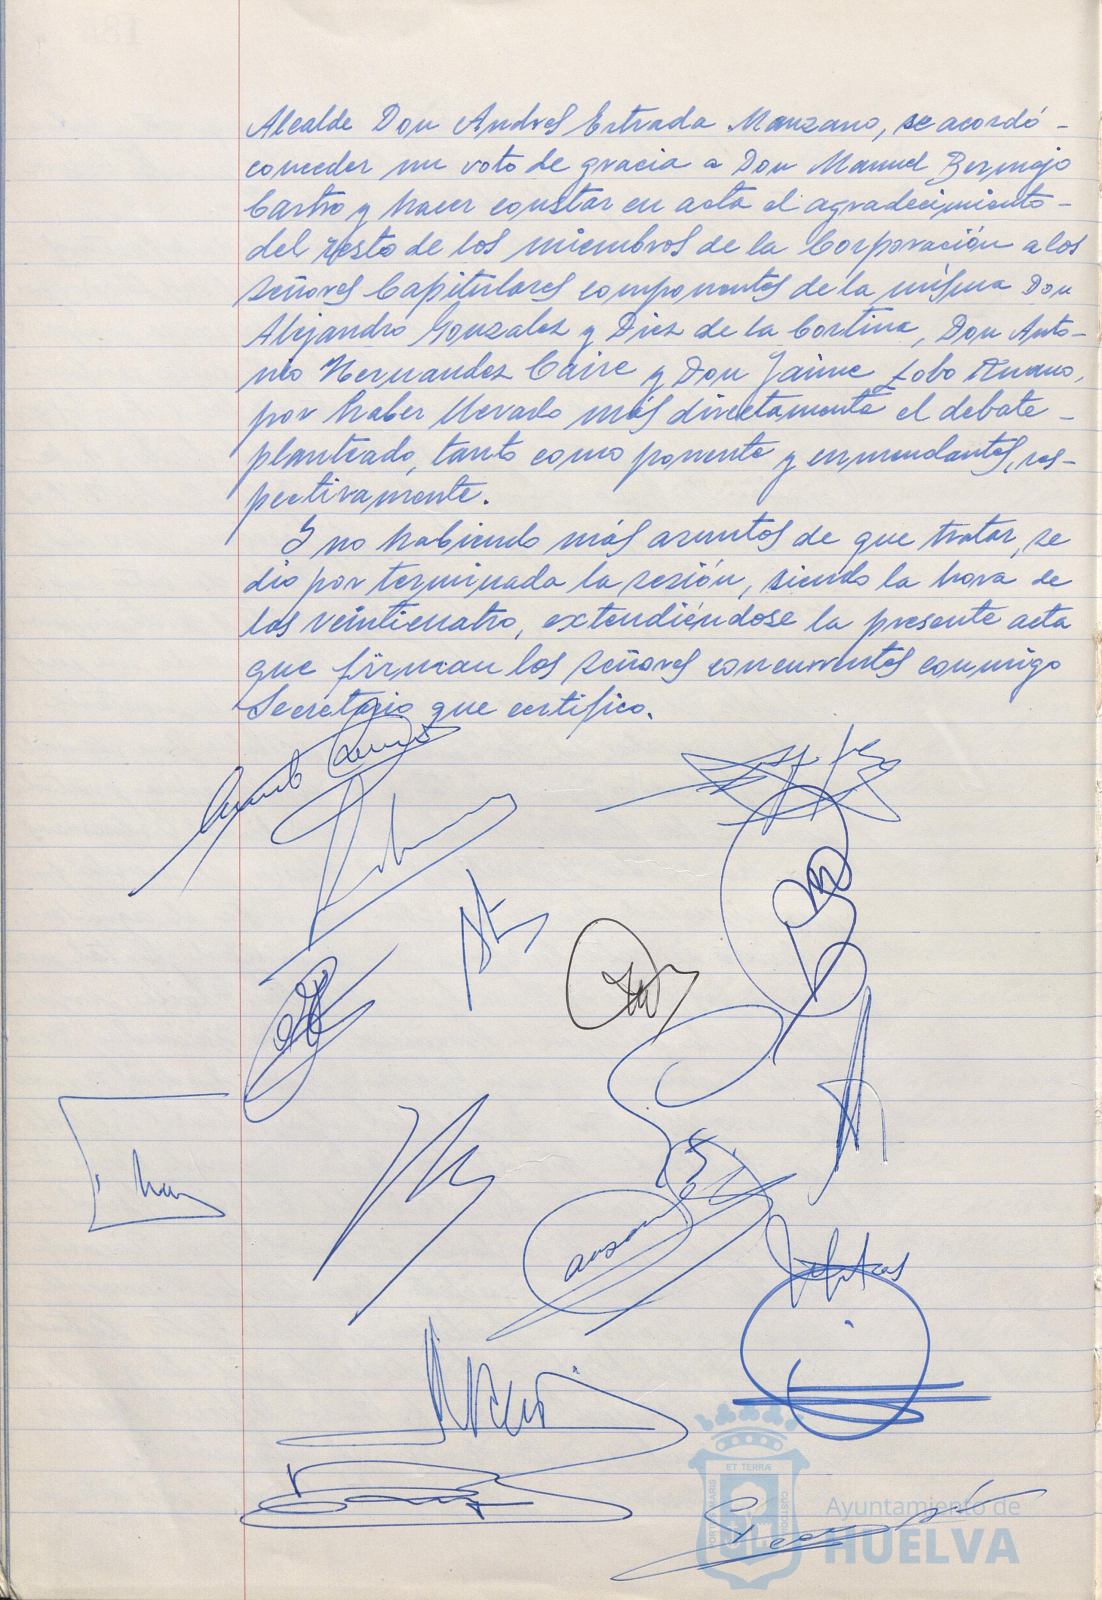 Alcalde Don Andres Estrada Manzano, se acordó -
conceder un voto de gracia a Don Manuel Bermejo
Castro y hacer constar en acta el agradecimiento -
del resto de los miembros de la Corporación a los
señores Capitulares componentes de la misma Don
Alejandro Gonzalez y Diez de la Cortina, Don Anto-
nio Hernandez Caire y Don Jaime Lobo
por haber llevado más directamente el debate -
planteado, tanto como ponente y enmendantes, res-
pectivamente.
Y no habiendo más asuntos de que tratar, se
dio por terminada la sesión, siendo la hora de
las veinticuatro, extendiéndose la presente acta
que firman los señores concurrentes conmigo
Secretario que certifico.
ET TERRÆ
PORTUS MARIS
CUSTODIA
Ayuntamiento de
HUELVA